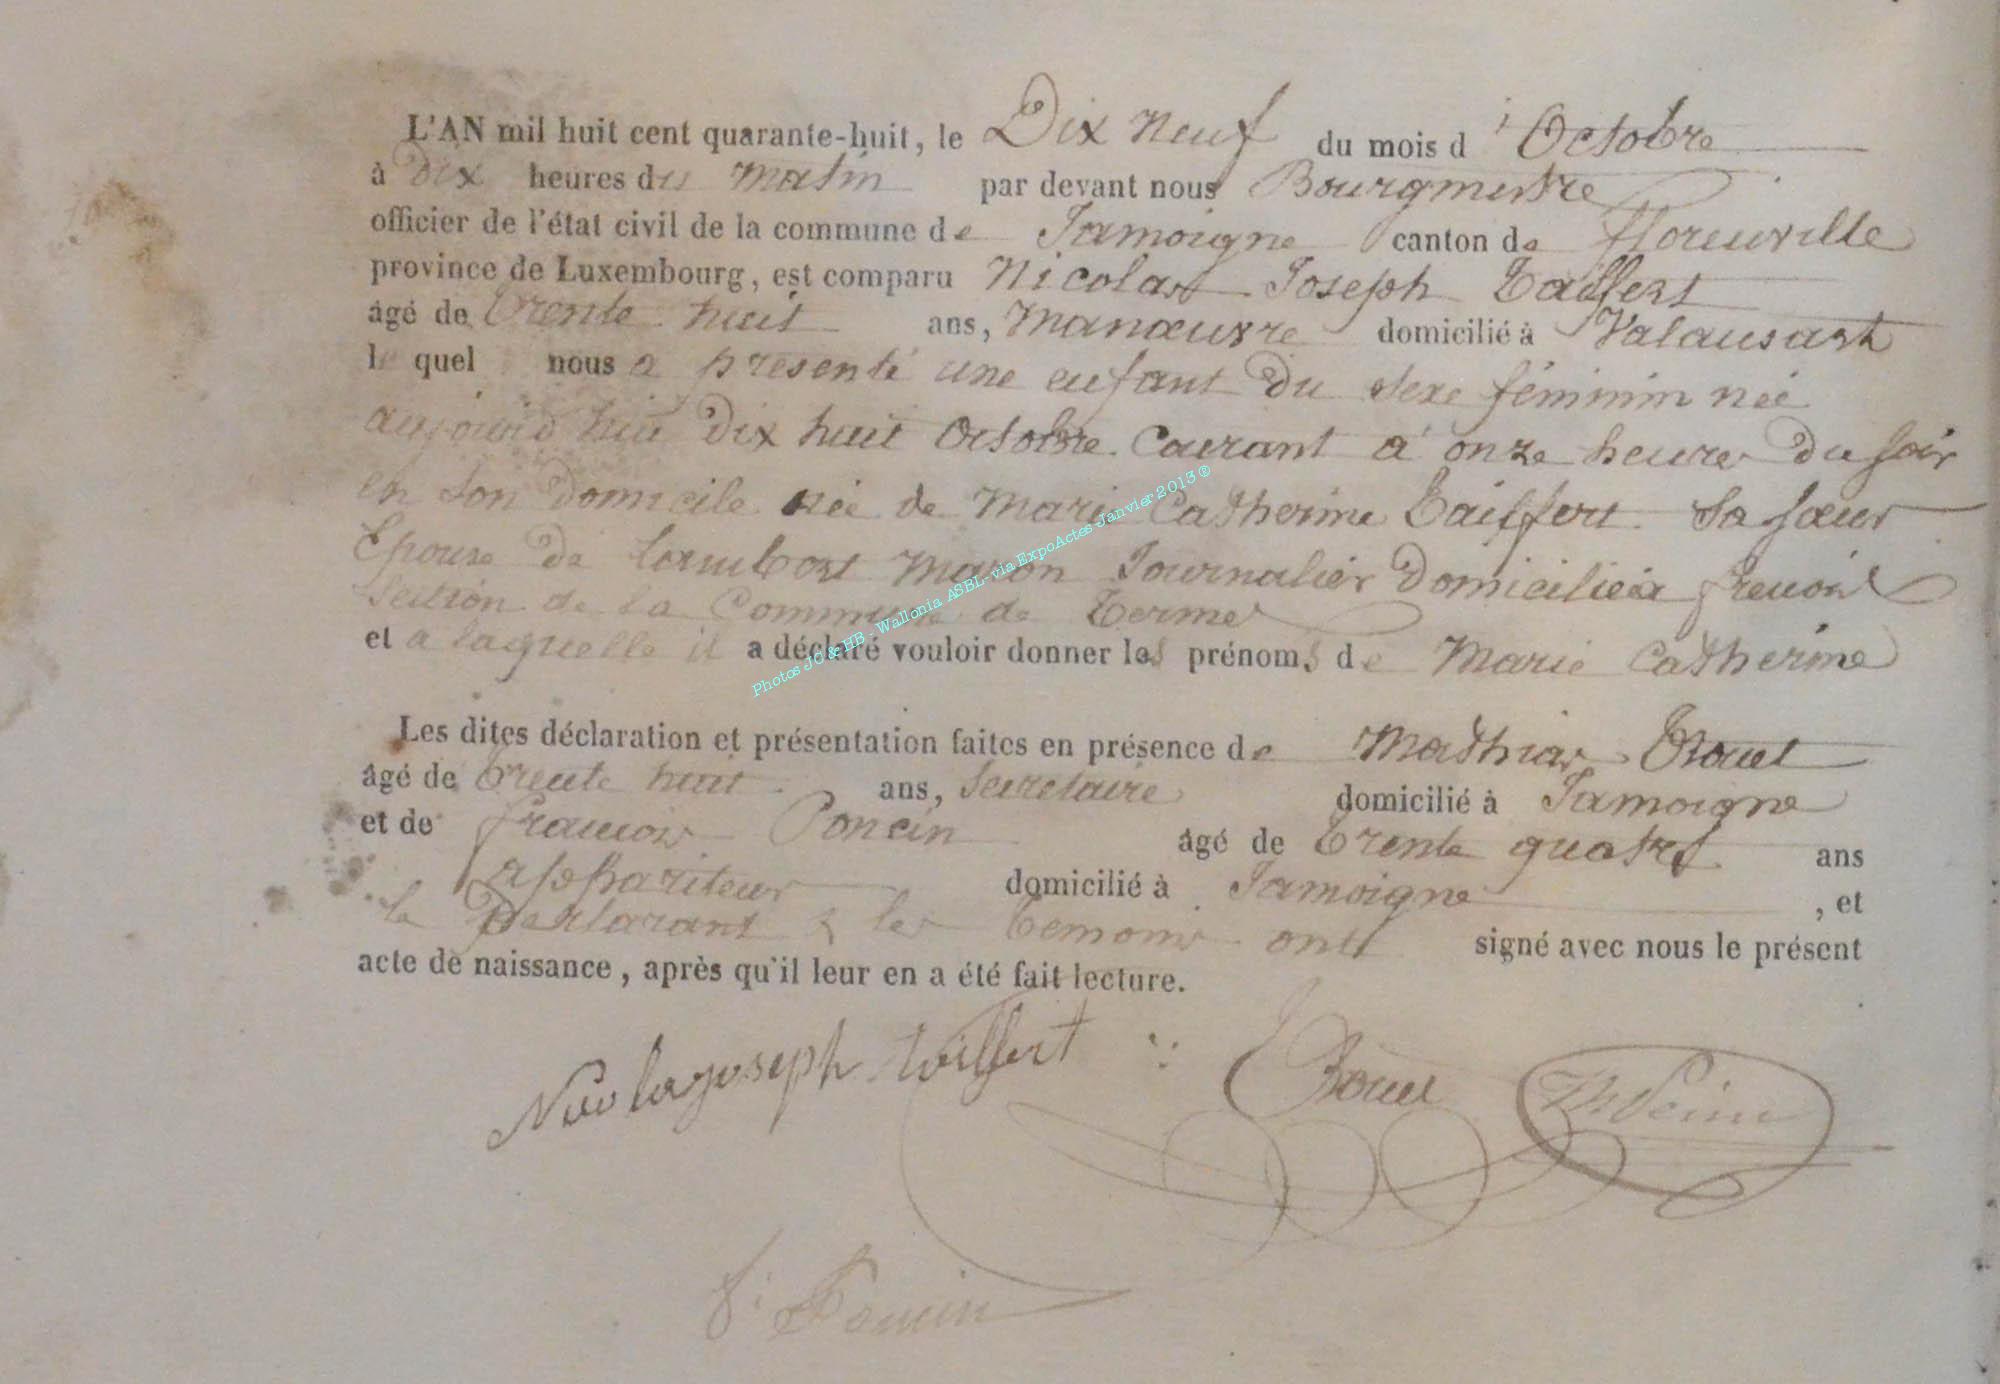 L'AN mil huit cent quarante-huit, le Dix neuf du mois d'Octobre
à Dix heures du matin par devant nous Bourgmestre
officier de l'état civil de la commune de Jamoigne canton de fflorenville
province de Luxembourg, est comparu Nicolas Joseph Taiffert
âgé de trente huit ans, manœuvre domicilié à Valansart
le quel nous a présenté une enfant du sexe féminin née
aujourd'hui dix huit Octobre courant à onze heures du soir
en son domicile née de Marie Catherine Taiffert sa sœur
Epouse de Lambert Maron Journalier Domicilié à frenois
section de la Commune de Termes
et a laquelle il a déclaré vouloir donner les prénoms de Marie Catherine
Les dites déclaration et présentation faites en présence de Mathias
âgé de trente huit ans, secretaire domicilié à Jamoigne
et de francois Poncin âgé de trente quatre ans
appariteur domicilié à Jamoigne, et
le Declarant & les temoins ont signé avec nous le présent
acte de naissance, après qu'il leur en a été fait lecture.
Nicolas joseph taiffert
f: Poncin
Photos JC & HB - Wallonia ASBL- via ExpoActes Janvier 2013 ®